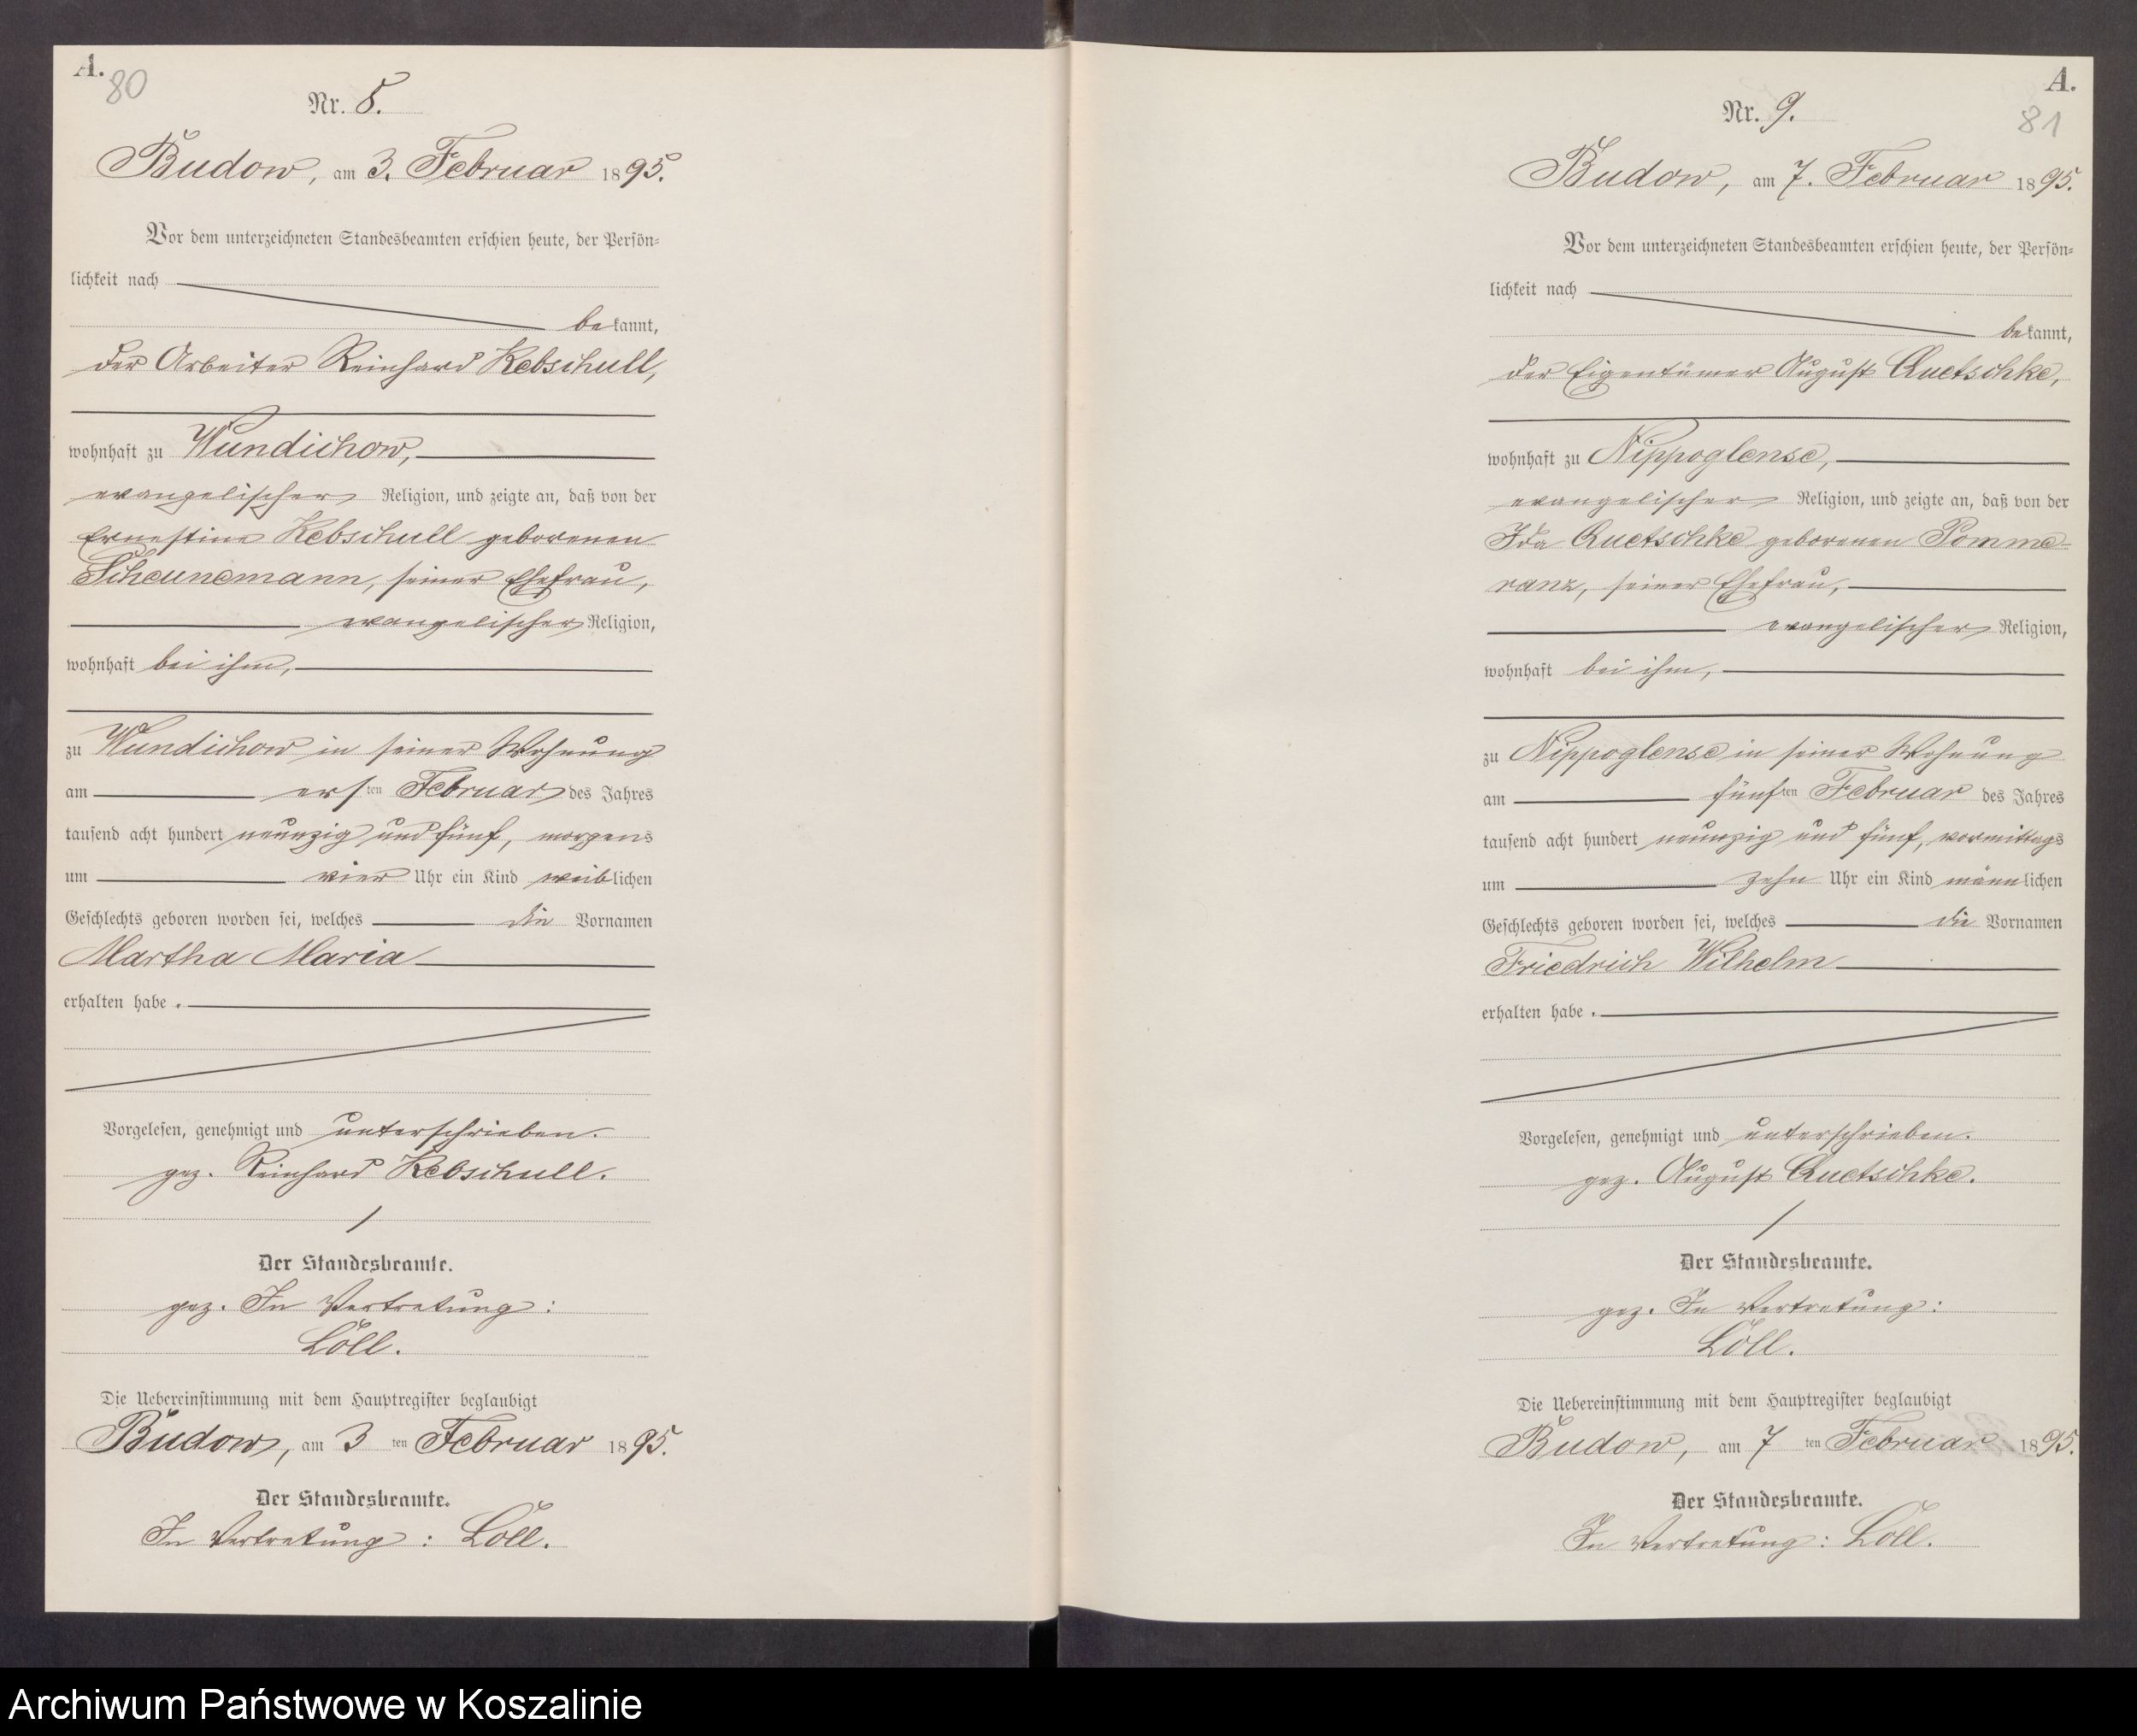 A.
80
Nr. 8.
Budow, am 3. Februar 1895.
Vor dem unterzeichneten Standesbeamten erschien heute, der Persön-
lichkeit nach
bekannt,
der Arbeiter Reinhard Kebschull,
wohnhaft zu Wundichow,
evangelischer Religion, und zeigte an, daß von der
Ernestine Kebschull geborenen
Scheunemann, seiner Ehefrau,
evangelischer Religion,
wohnhaft bei ihm,
zu Wundichow in seiner Wohnung
am ersten Februar des Jahres
tausend acht hundert neunzig und fünf, morgens
um vier Uhr ein Kind weiblichen
Geschlechts geboren worden sei, welches die Vornamen
Martha Maria
erhalten habe.
Vorgelesen, genehmigt und unterschrieben.
gez. Reinhard Kebschull.
Der Standesbeamte.
gez. In Vertretung:
Löll.
Die Uebereinstimmung mit dem Hauptregister beglaubigt
Budow, am 3 ten Februar 1895.
Der Standesbeamte.
In Vertretung: Löll.
A.
81
Nr. 9.
Budow, am 7. Februar 1895.
Vor dem unterzeichneten Standesbeamten erschien heute, der Persön-
lichkeit nach
bekannt,
der Eigentümer August Quetschke,
wohnhaft zu Nippoglense,
evangelischer Religion, und zeigte an, daß von der
Ida Quetschke geborenen Pomme-
ranz, seiner Ehefrau,
evangelischer Religion,
wohnhaft bei ihm,
zu Nippoglense in seiner Wohnung
am fünften Februar des Jahres
tausend acht hundert neunzig und fünf, vormittags
um zehn Uhr ein Kind männlichen
Geschlechts geboren worden sei, welches die Vornamen
Friedrich Wilhelm
erhalten habe.
Vorgelesen, genehmigt und unterschrieben.
gez. August Quetschke.
Der Standesbeamte.
gez. In Vertretung:
Löll.
Die Uebereinstimmung mit dem Hauptregister beglaubigt
Budow, am 7 ten Februar 1895.
Der Standesbeamte.
In Vertretung: Löll.
Archiwum Państwowe w Koszalinie